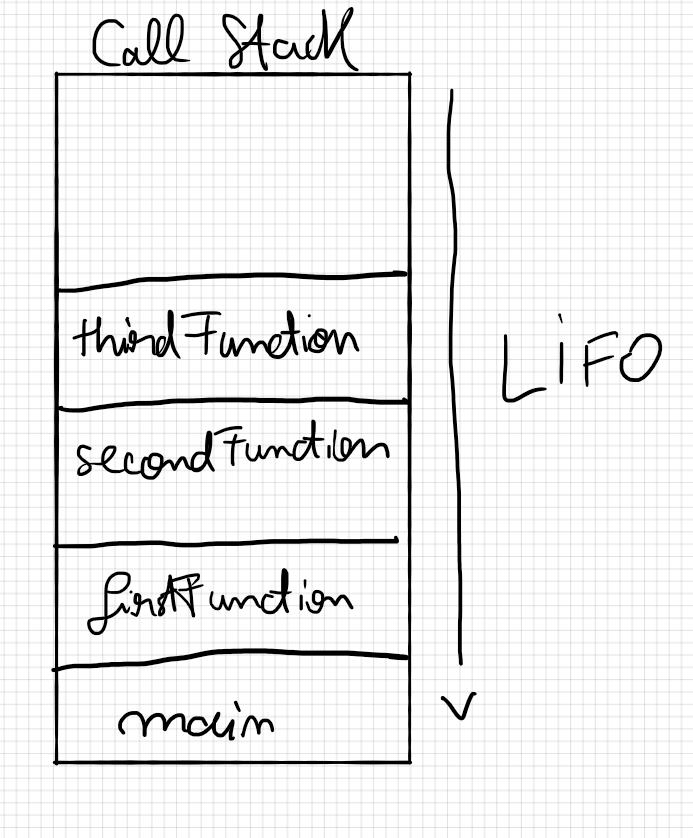 Call Stack
thirdFunction
LiFO
secondFunction
firstFunction
main